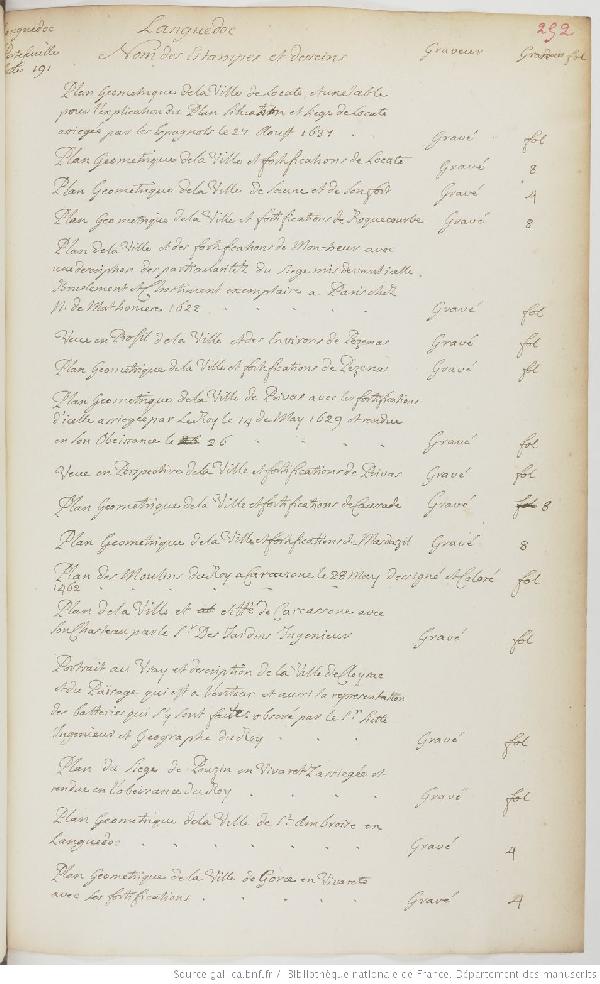 Languedoc 252
Languedoc
Portefeuille
191
Nom des Estampes et desseins Graveur Grandeur fol
Plan Geometrique de la Ville de Locate et une table
pour l'explication du Plan Situation et siege de Locate
assiegé par les Espagnols le 27 Aoust 1637 Gravé fol
Plan Geometrique de la Ville et fortifications de Locate Gravé 8
Plan Geometrique de la Ville de et de Gravé 4
Plan Geometrique de la Ville et fortifications de Roquecourbe Gravé 8
Plan de la Ville et des fortifications de Monheur avec
une description des particularitez du siege mis devant icelle.
a Paris chez
N. de Mathoniere 1622 Gravé fol
Veue en Profil de la Ville et des Environs de Pezenas Gravé fol
Plan Geometrique de la Ville et fortifications de Pezenas Gravé fol
Plan Geometrique de la Ville de Privas avec les fortifications
d'icelle assiegée par Le Roy le 14 de May 1629 et rendue
en son Obeissance le 26 Gravé fol
Veue en Perspective de la Ville et fortifications de Privas Gravé fol
Plan Geometrique de la Ville et fortifications de Caussade Gravé fol 8
Plan Geometrique de la Ville et fortifications du Masdazil Gravé 8
Plan des Moulins du Roy a Carcassone le 28 May dessigné et Coloré fol
1462
Plan de la Ville et Cité de Carcassone avec
son Chasteau par le Sr. Des Jardins Ingenieur Gravé fol
Portrait au Vray et description de la Ville de Cleyrac
et du Païsage qui est a l'entour et aussi la representation
des batteries qui s'y sont faites observé par le Sr.
Ingenieur et Geographe du Roy Gravé fol
Plan du Siege de Pouzin en Vivaretz assiegée et
rendue en l'obeissance du Roy Gravé fol
Plan Geometrique de la Ville de St. Ambroise en
Languedoc Gravé 4
Plan Geometrique de la Ville de Gorce en Vivarets
avec ses fortifications Gravé 4
Source gallica.bnf.fr / Bibliothèque nationale de France. Département des manuscrits